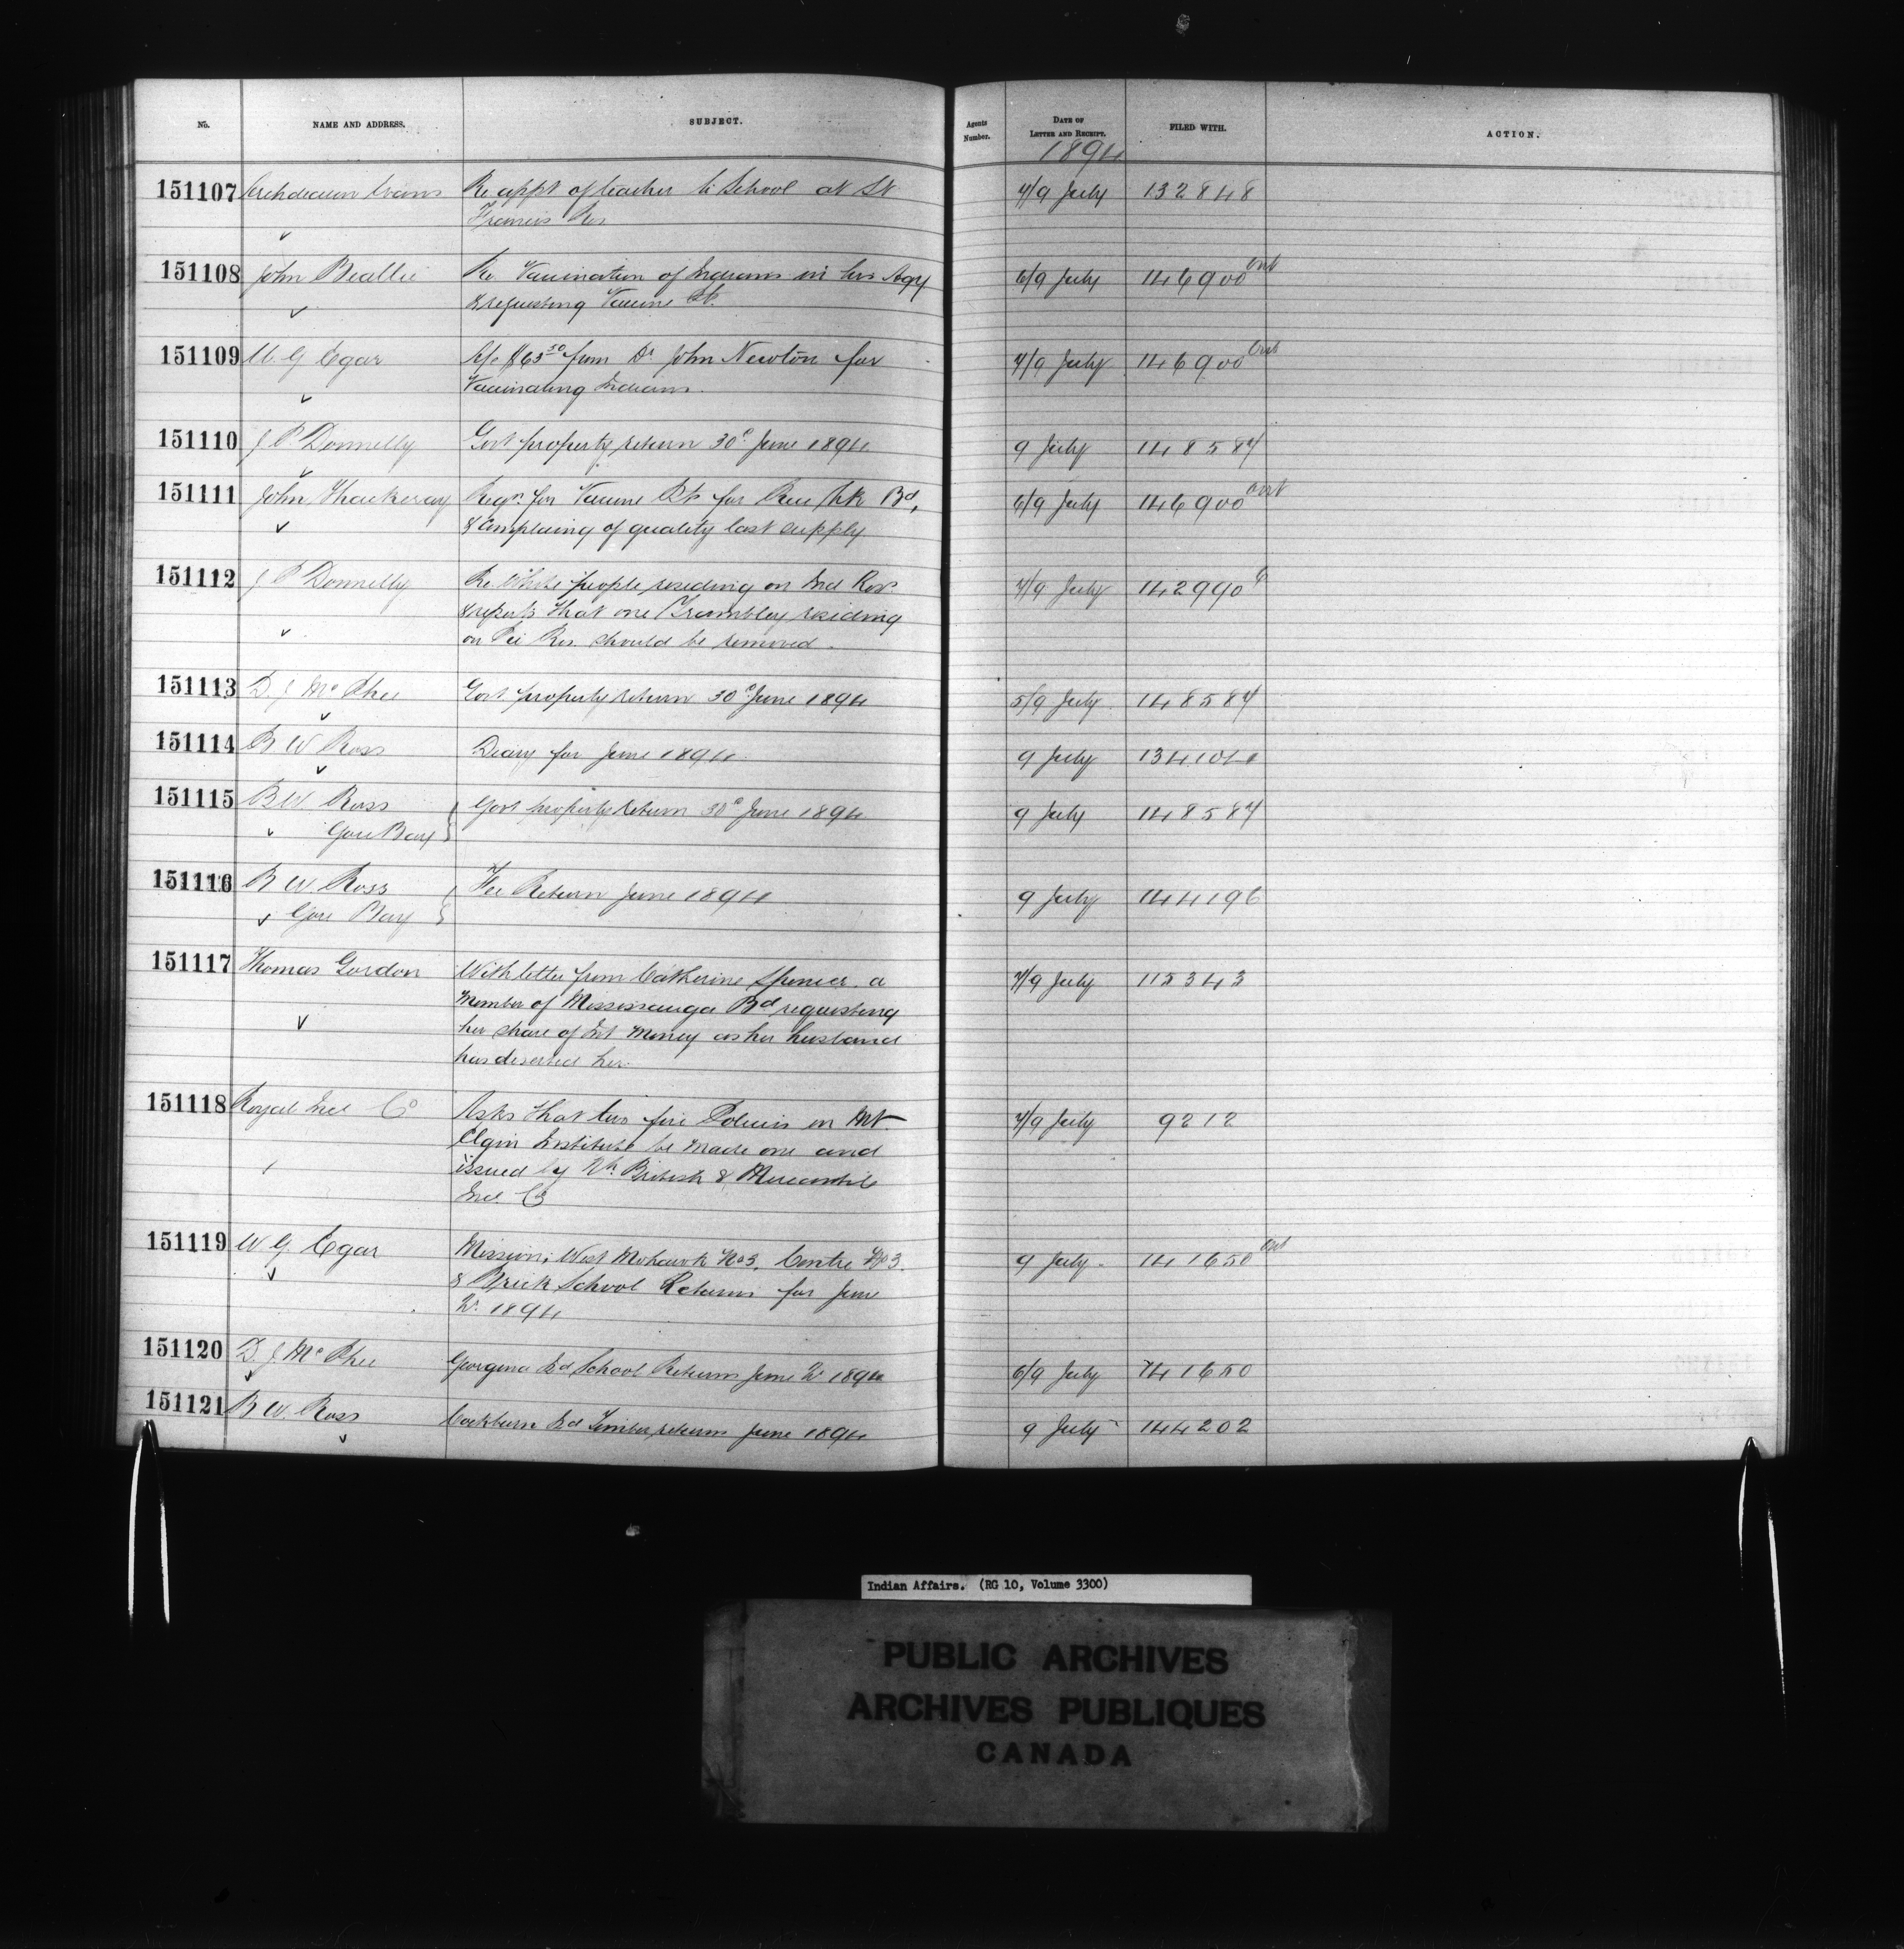 No. NAME AND ADDRESS. SUBJECT. Agents Number. DATE OF LETTER AND RECEIPT. FILED WITH. ACTION.
1894
151107 Archdeacon Evans Re appt of teacher to School at St 7/9 July 132848
Francis Res
151108 John Beattie Re Vaccination of Indians in his Agy 6/9 July 146900 Ont
& requesting Vaccine Pts.
151109 W G Egar A/c $65.50 from Dr John Newton for 7/9 July 146900 Ont
Vaccinating Indians.
151110 J P Donnelly Govt property return 30th June 1894 9 July 148587
151111 John Thackeray Reqn for Vaccine Pts for Rice Lk Bd, 6/9 July 146900 Ont
& complaining of quality last supply
151112 J P Donnelly Re. White people residing on Ind Res 7/9 July 142990
& reports that one Trembley residing
on Pic Res. should be removed.
151113 D. J. McPhee Govt property return 30th June 1894 5/9 July 148587
151114 B W Ross Diary for June 1894 9 July
151115 B W Ross Govt property return 30th June 1894 9 July 148587
Gore Bay
151116 B W. Ross Fee Return June 1894 9 July 144196
Gore Bay
151117 Thomas Gordon With letter from Catherine Spencer a 7/9 July 115343
Member of Mississauga Bd requesting
her share of Int Money as her husband
has deserted her.
151118 Royal Ins Co Asks that two fire Policies on Mt 7/9 July 9212
Elgin Institute be made one and
issued by Nh British & Mercantile
Ins. Co
151119 W G Egar Mission, West Mohawk No 3, Centre No 3 9 July 141650 Ont
& Brick School Returns for June
Qr 1894
151120 D. J. McPhee Georgina Isd School Return June Qr 1894 6/9 July 141650
151121 B W. Ross Cockburn Isd Timber return June 1894 9 July 144202
Indian Affairs. (RG 10, Volume 3300)
PUBLIC ARCHIVES
ARCHIVES PUBLIQUES
CANADA